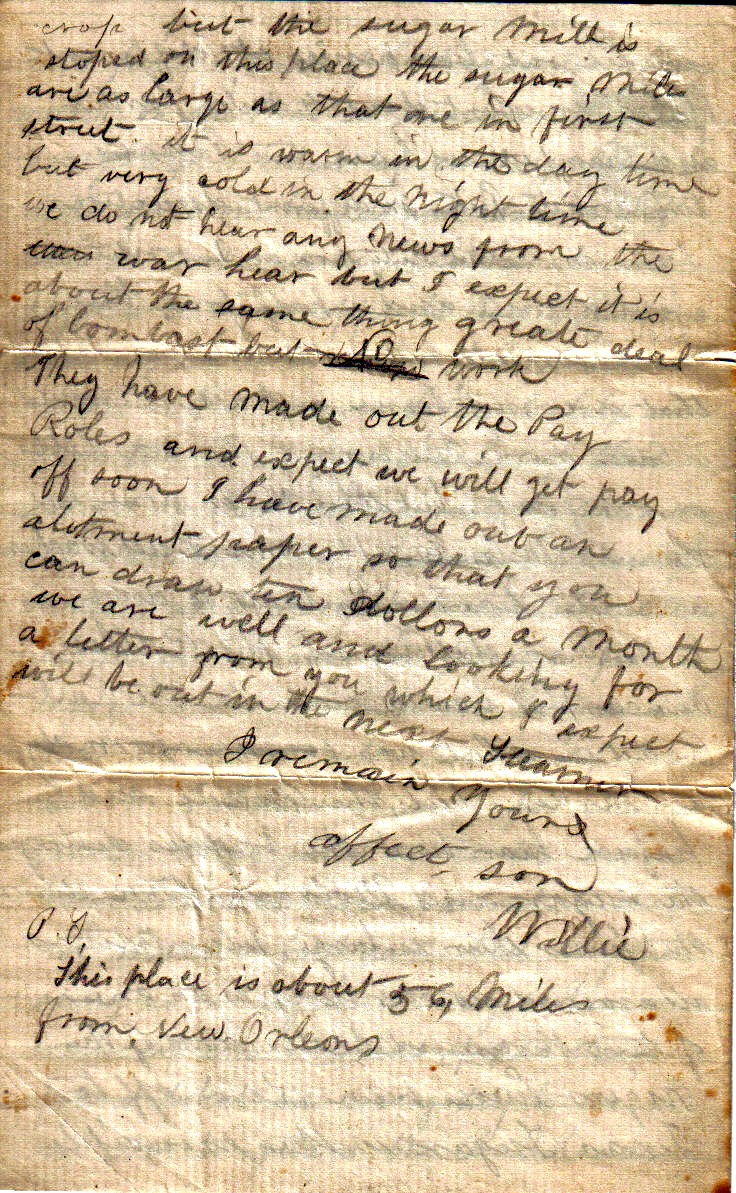 crop but the sugar Mill is
stoped on this place the sugar Mills
are as large as that one in first
street. it is warm in the day time
but very cold in the night time
we do not hear any News from the
war hear but I expect it is
about the same thing greate deal
of bombast but no work
They have made out the Pay
Roles and expect we will get pay
off soon I have made out an
alotment paper so that you
can draw ten dollors a month
we are well and looking for
a letter from you which I expect
will be out in the next Steamer
I remain Yours
affect son
Willie
P.S.
This place is about 56 Miles
from New Orleons